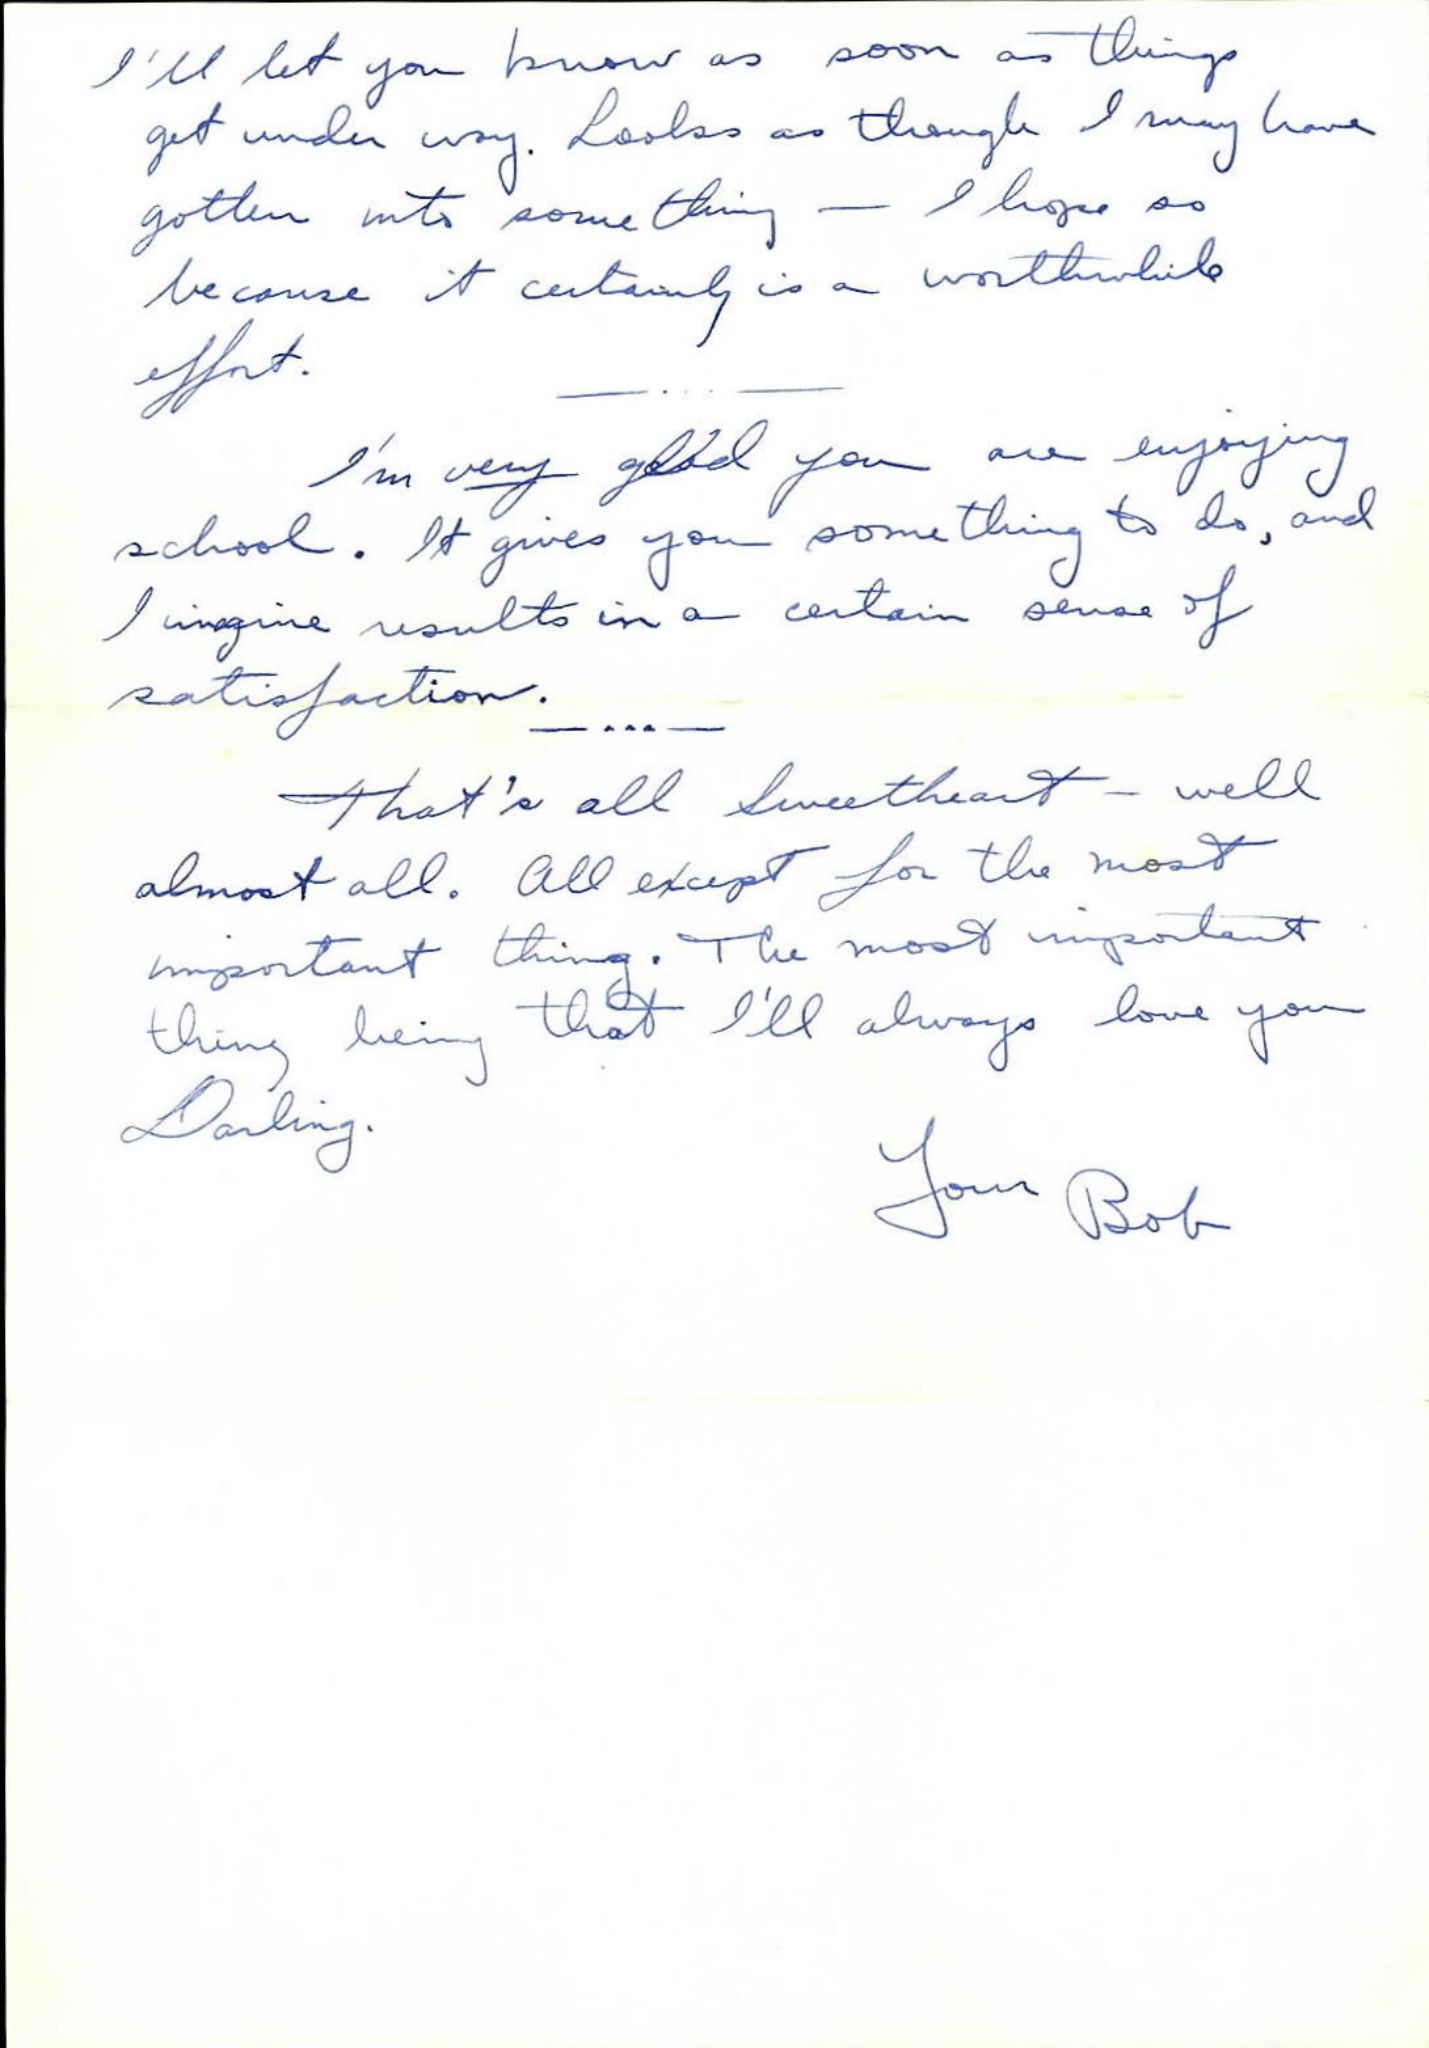 I'll let you know as soon as things
get under way. Looks as though I may have
gotten into something — I hope so
because it certainly is a worthwhile
effort.
— ... —
I'm very glad you are enjoying
school. It gives you something to do, and
I imagine results in a certain sense of
satisfaction.
— ... —
That's all Sweetheart – well
almost all. All except for the most
important thing. The most important
thing being that I'll always love you
Darling.
Your Bob